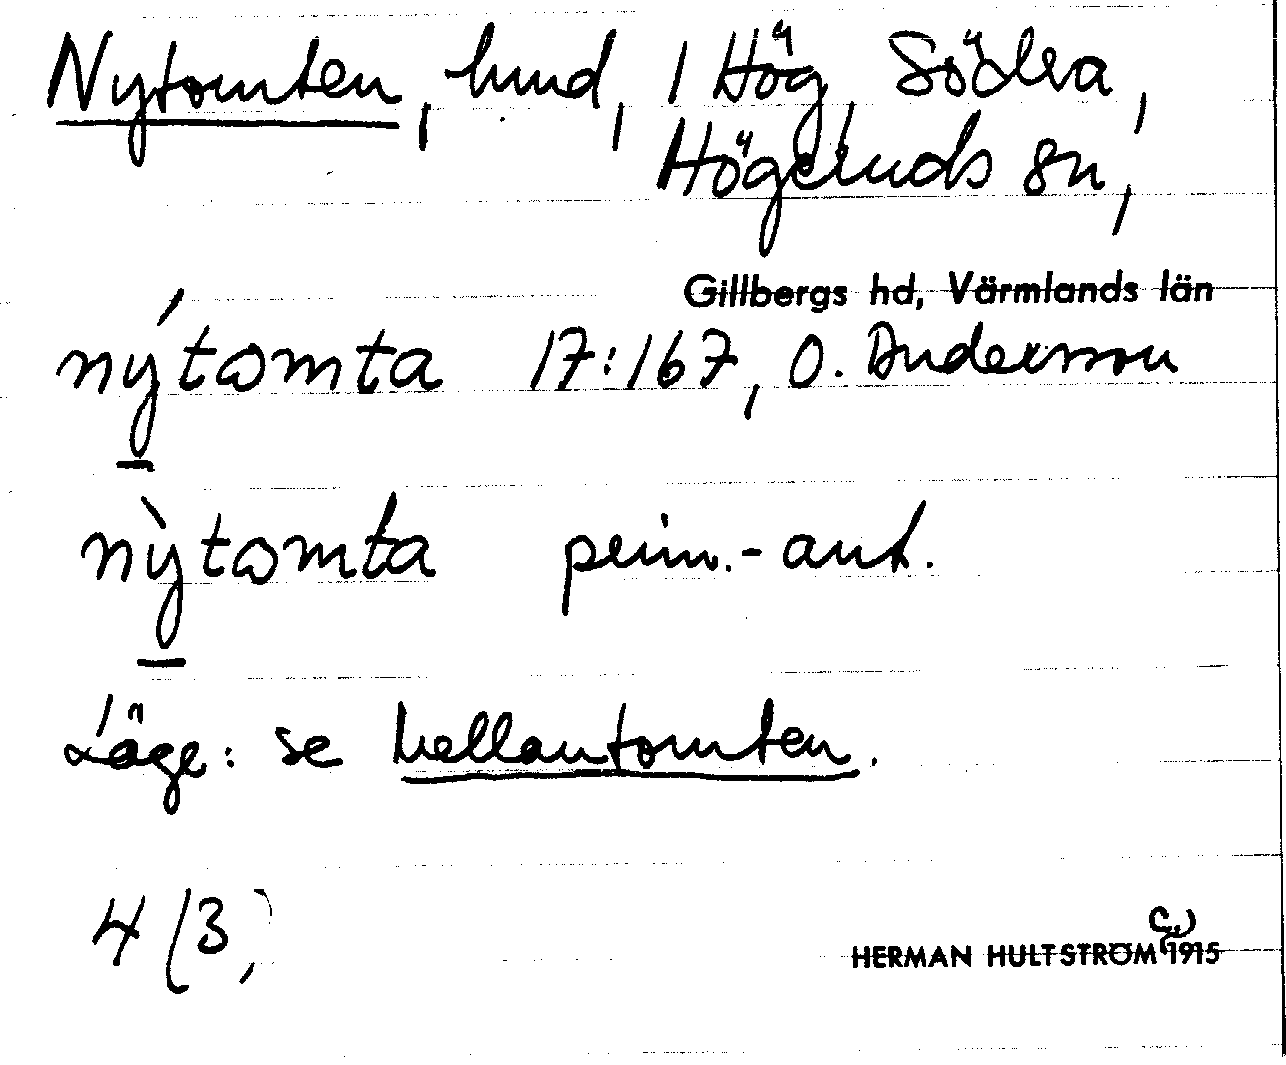 Nytomten, lund, 1 Hög, Södra,
Högeruds sn,
Gillbergs hd, Värmlands län
nýtωmta 17:167, O. Andersson
nỳtωmta prim.-ant.
Läge: se Mellantomten.
4/3,
HERMAN HULTSTRÖM 1915